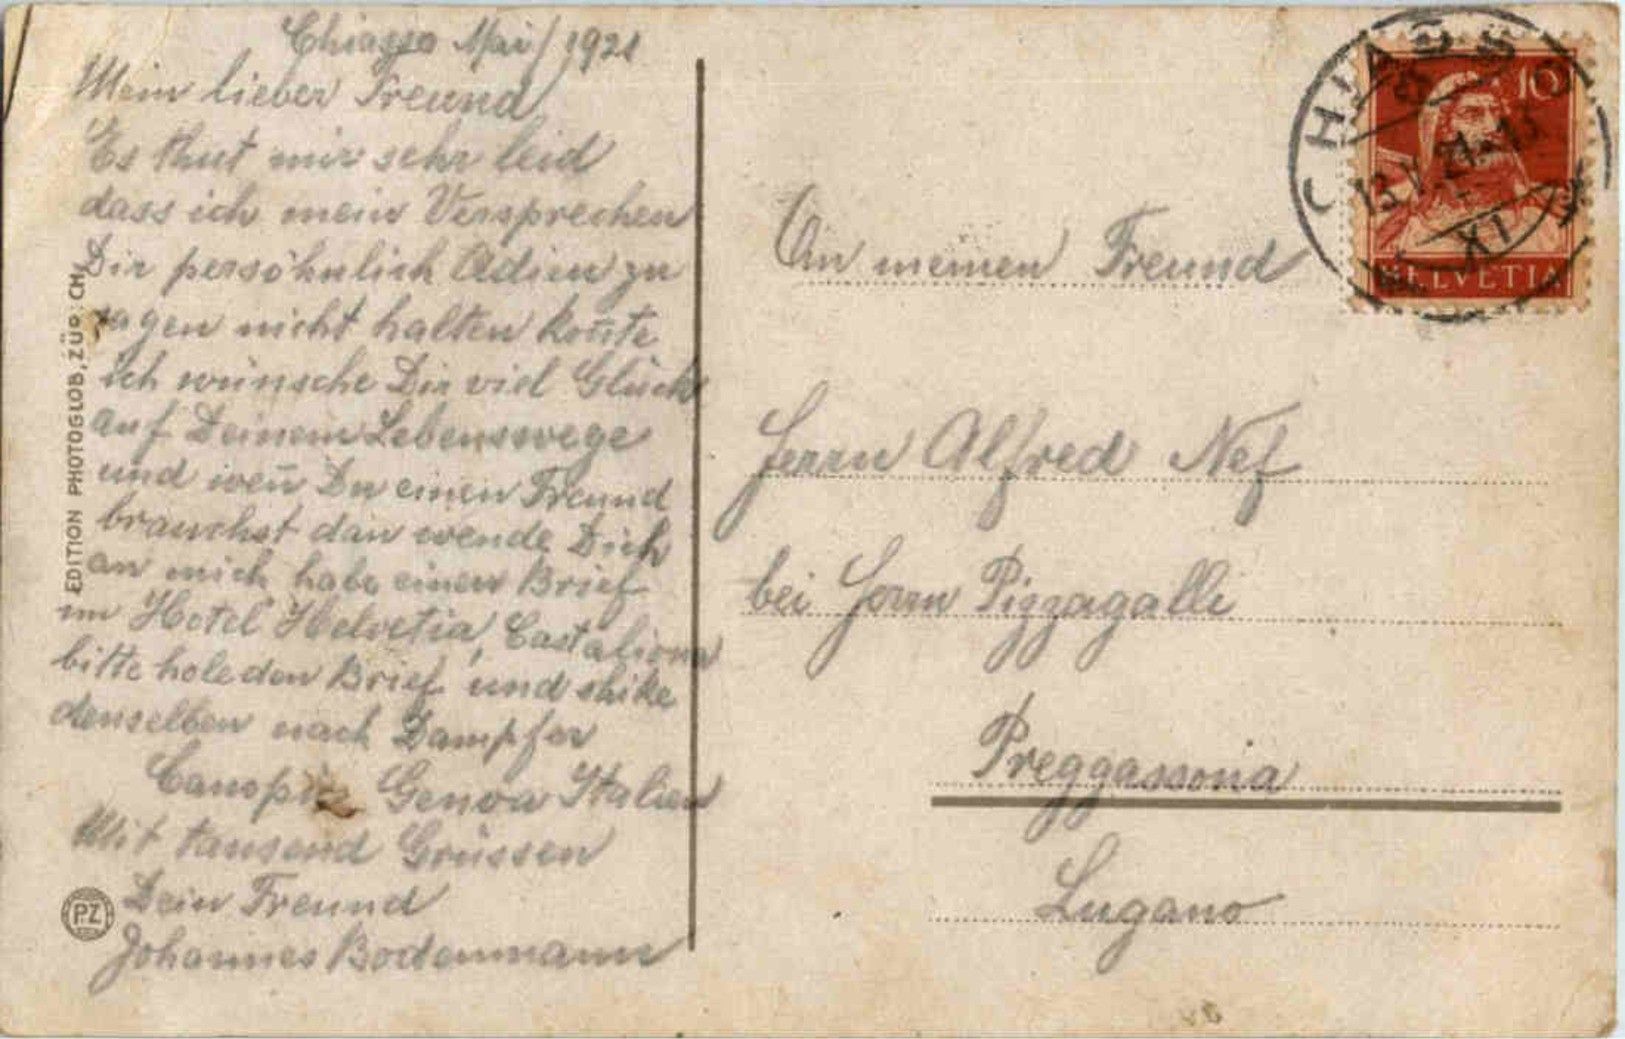 Chiasso Mai/1921
Mein lieber Freund
Es thut mir sehr leid
dass ich mein Versprechen
Dir persöhnlich Adieu zu
sagen nicht halten kon̄te
ich wünsche Dir viel Glück
auf Deinem Lebenswege
und wen̄ Du einen Freund
brauchst dan wende Dich
an mich habe einen Brief
im Hotel Helvetia, Castaliona
bitte hole den Brief und shike
denselben nach Dampfer
Genova Italien
Mit tausend Grüssen
Dein Freund
Johannes Bodenmann
EDITION PHOTOGLOB, ZÜRICH
PZ
CHIASSO
13.V.21.-13
XI
10
HELVETIA
An meinen Freund
Herrn Alfred Nef
bei Herrn Pizzagalli
Preggassona
Lugano